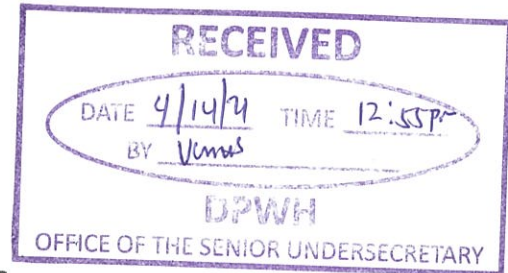 RECEIVED
DATE 4/14/21 TIME 12:55pm
BY Venus
DPWH
OFFICE OF THE SENIOR UNDERSECRETARY